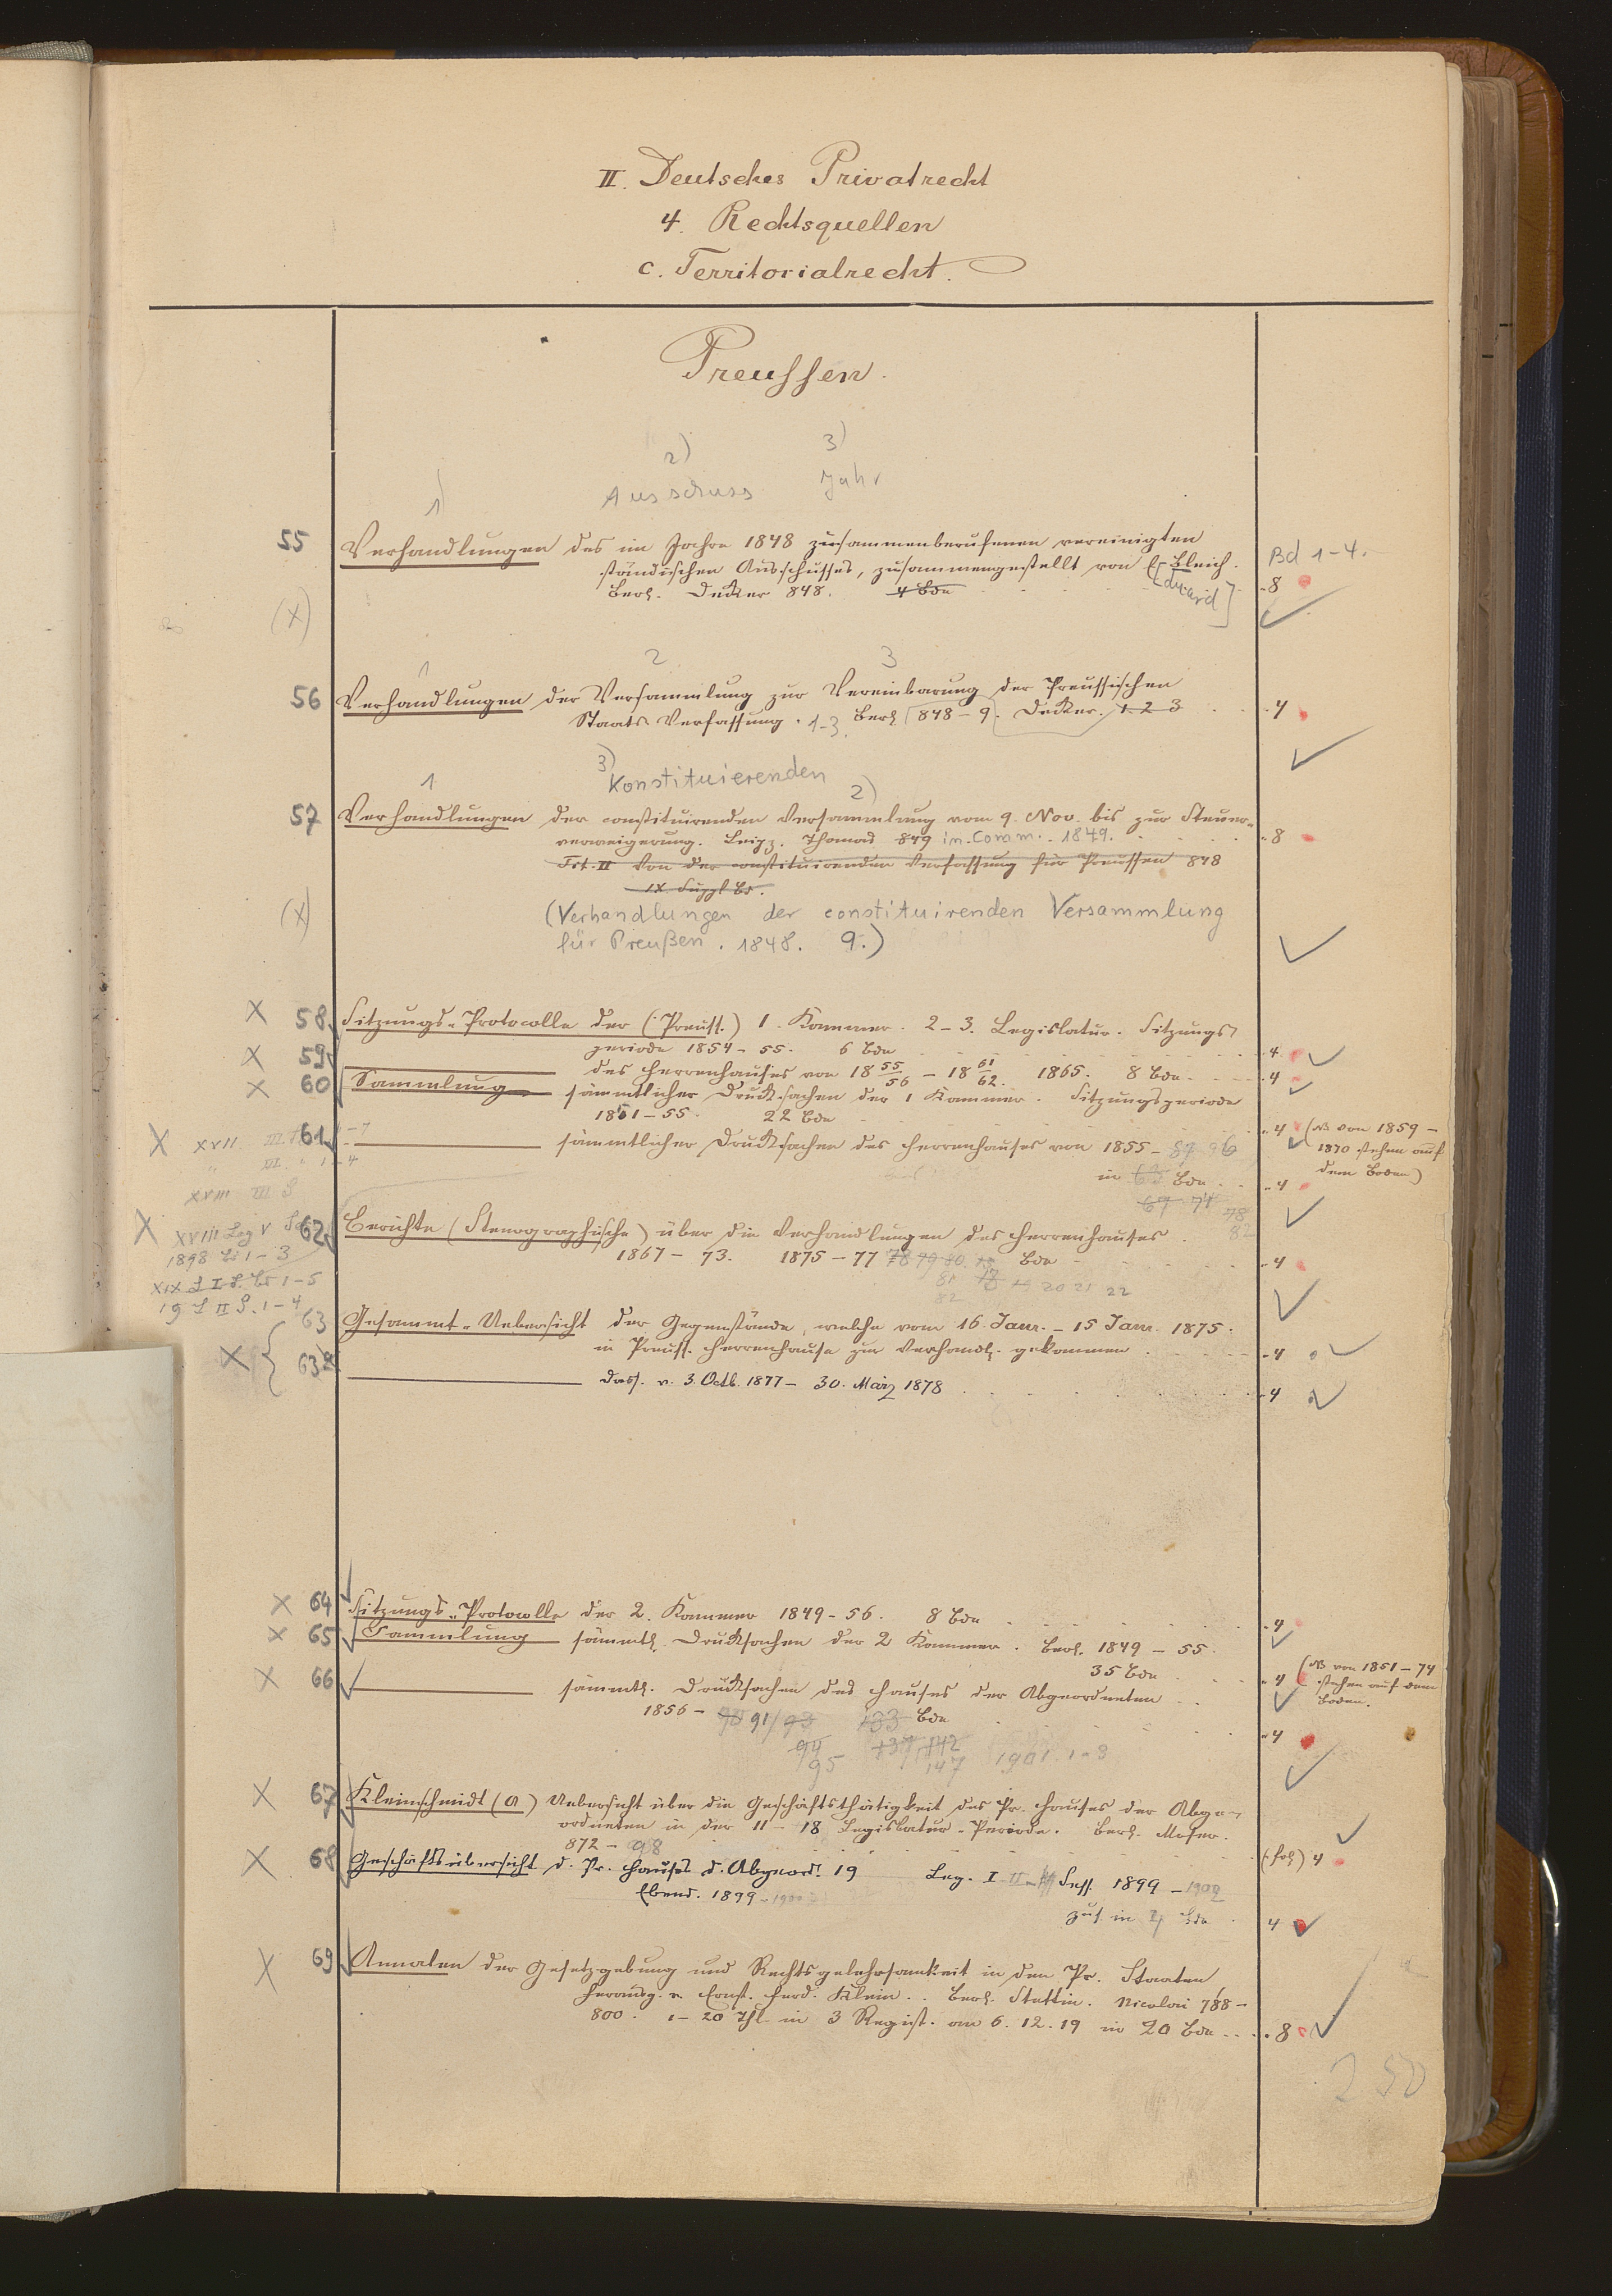 II. Deutsches Privatrecht
4. Rechtsquellen
c. Territorialrecht.
Preussen.
2) 3)
1) Ausschuss Jahr
55 Verhandlungen des im Jahre 1848 zusammenberufenen vereinigten
ständischen Ausschusses, zusammengestellt von E. Bleich. Bd 1-4.
Berl. Decker 848. 4 Bde [Eduard] 8
(X)
1 2 3
56 Verhandlungen der Versammlung zur Vereinbarung der Preussischen
Staats Verfassung. 1-3. Berl. 848-9. Decker. 1. 2 3 4
3) Konstituierenden
1 2)
57 Verhandlungen der constituirenden Versammlung vom 9. Nov. bis zur Steuer-
verweigerung. Leipz. Thomas 849 in Comm. 1849. 8
Tit. II Von der constituirenden Verfassung für Preussen 848
IX. Suppl Bd.
(X) (Verhandlungen der constituirenden Versammlung
für Preußen. 1848. 9.)
X 58 Sitzungs-Protocolle der (Preuss.) 1. Kammer. 2-3. Legislatur. Sitzungs
periode 1854-55. 6 Bde 4
X 59 des Herrenhauses von 18 55/56 - 18 61/62. 1865. 8 Bde 4
X 60 Sammlung sämmtlicher Drucksachen der 1 Kammer. Sitzungsperiode
1851-55. 22 Bde 4 (NB von 1859-
X XVII 61 sämmtlicher Drucksachen des Herrenhauses von 1855- 96 1870 stehen auf
in Bde 4 dem Boden)
XVIII III S 67 74 78
X XVIII Leg V 62 Berichte (Stenographische) über die Verhandlungen des Herrenhauses. 82
1898 Bd 1-3 1867-73. 1875-77 78 79 80. Bde 4
XIX L I S. Bd 1-5 81 20 21 22
19 L II S. 1-4 82
63 Gesammt-Uebersicht der Gegenstände, welche vom 16. Janr. - 15 Janr. 1875.
in Preuss. Herrenhause zur Verhandl. gekommen 4
X 63a dass. v. 3. Octb. 1877 - 30. März 1878 4
X 64 Sitzungs-Protocolle der 2. Kammer 1849-56. 8 Bde 4
X 65 Sammlung sämmtl. Drucksachen der 2 Kammer. Berl. 1849-55.
35 Bde 4 (NB von 1851-74
X 66 sämmtl. Drucksachen des Hauses der Abgeordneten stehen auf dem
1856- 91/93 133 Bde Boden.
94 137 142 4
95 147 1901. 1-8
X 67 Kleinschmidt (A) Uebersicht über die Geschäftsthätigkeit des Pr. Hauses der Abge-
ordneten in der 11-18 Legislatur-Periode. Berl. Moser.
872-98 (fol) 4
X 68 Geschäftsübersicht d. Pr. Hauses d. Abgeord. 19 Leg. I-II Sess. 1899-1902
Ebend. 1899-1900
zus. in 4 Bde 4
X 69 Annalen der Gesetzgebung und Rechtsgelehrsamkeit in den Pr. Staaten
herausg. v. Ernst. Ferd. Klein. Berl. Stettin. Nicolai 788-
800. 1-20 Thl. in 3 Regist. am 6. 12. 19 in 20 Bde 8
250